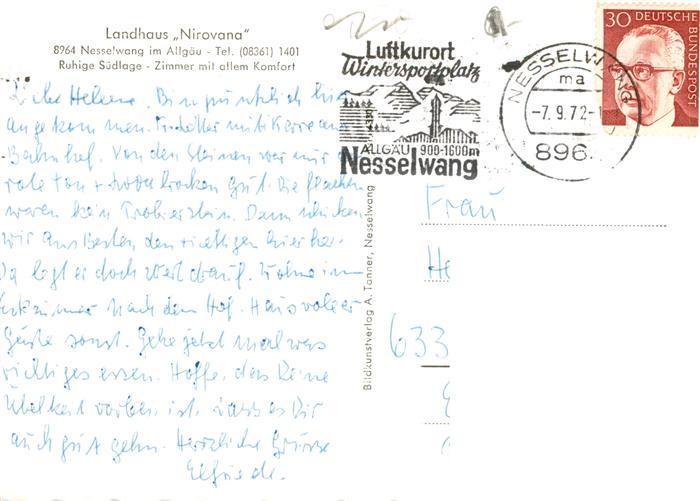 Landhaus „Nirovana"
8964 Nesselwang im Allgäu - Tel. (08361) 1401
Ruhige Südlage - Zimmer mit allem Komfort
Luftkurort
Wintersportplatz
ALLGÄU 900-1600m
Nesselwang
NESSELWANG
ma
-7.9.72-1
896
30 DEUTSCHE BUNDESPOST
Liebe Helene, Bin pünktlich hier
angekommen. mit Karre am
Bahnhof. Von den Steinen war nur
rote Ton + Brocken gut. Die flachen
waren kein Dann schicken
wir am Besten den richtigen hierher.
Da legt er doch Wert drauf. Wohne im
nach dem Hof. Haus voller
Gäste sonst. Gehe jetzt mal was
richtiges essen. Hoffe, das Deine
Übelkeit vorbei ist, dass es Dir
auch gut gehn. Herzliche Grüsse
Elfriede.
Bildkunstverlag A. Tanner, Nesselwang
Frau
He
633